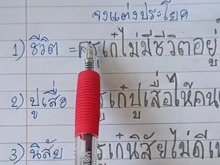 จงแต่งประโยค
1) ชีวิต = ครูเก๋ไม่มีชีวิตอยู่
2) ปูเสื่อ ครูเก๋ปูเสื่อให้คน
3) นิสัย ครูเก๋นิสัยไม่ดี